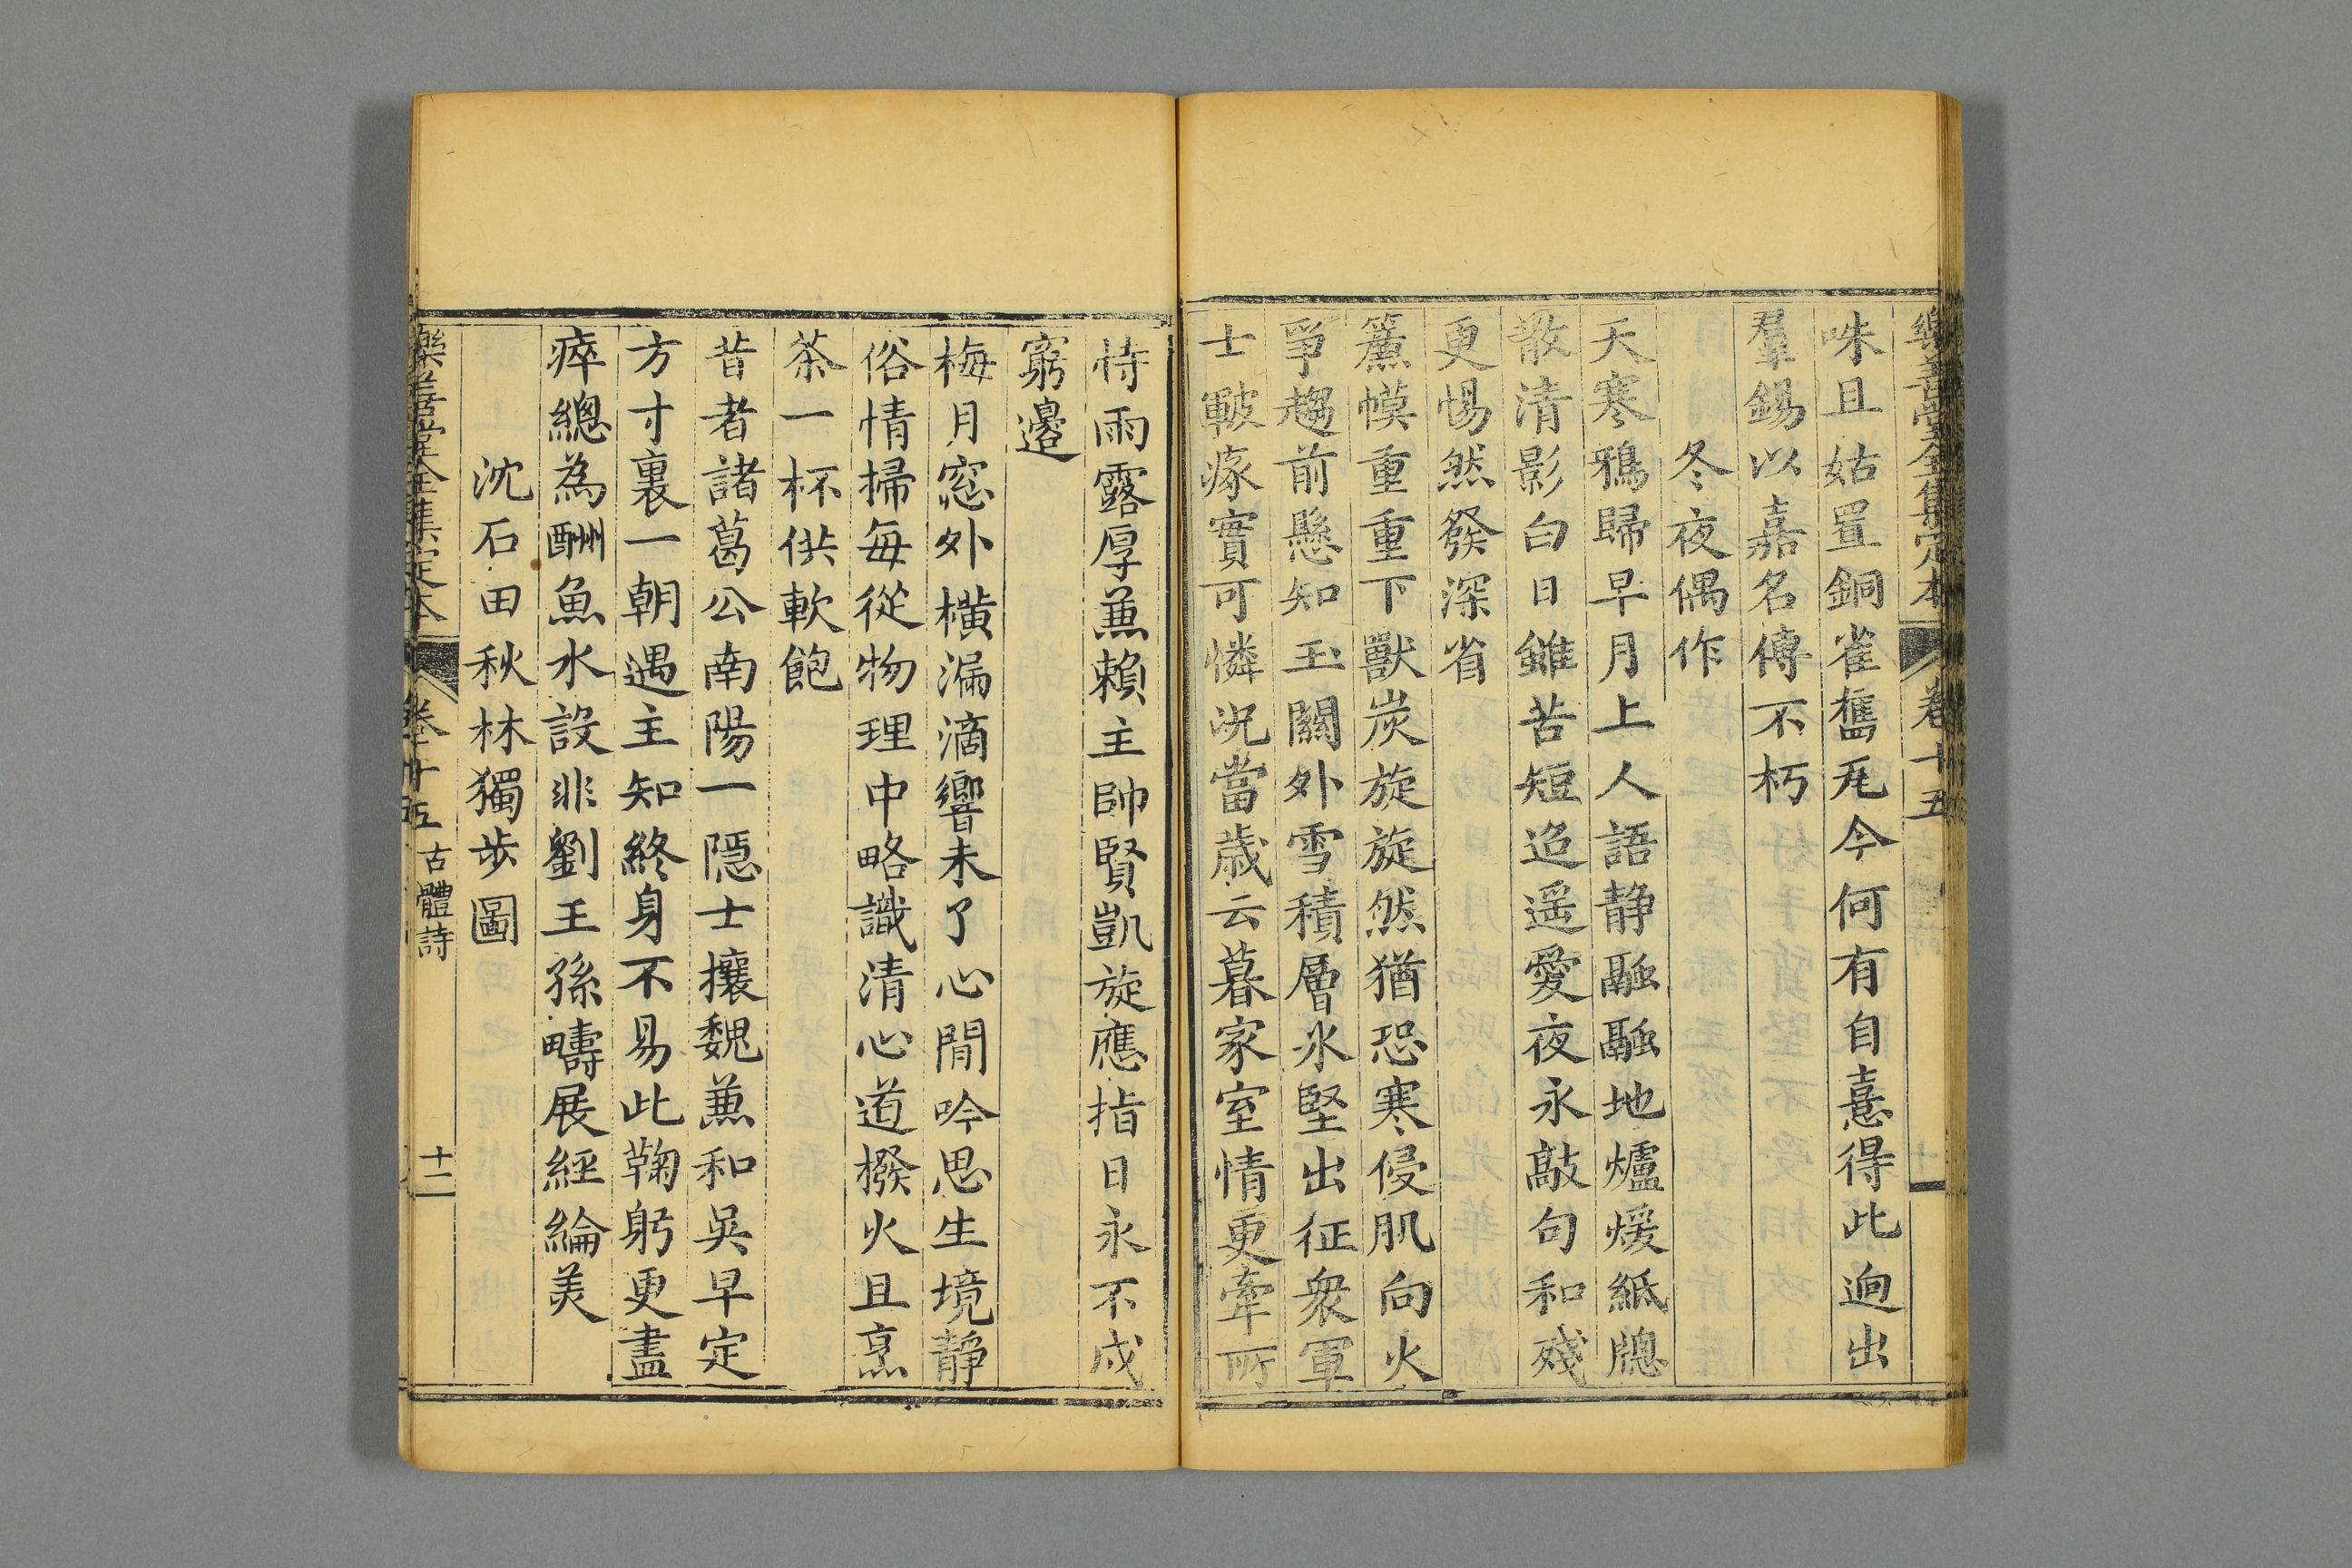 樂善堂全集定本 卷十五
咮且姑置銅雀舊瓦今何有自憙得此逈出
羣錫以嘉名傳不朽
冬夜偶作
天寒鴉歸早月上人語静融融地爐煖紙牕
散清影白日雖苦短迢遥愛夜永敲句和殘
更惕然發深省
簾幙重重下獸炭旋旋然猶恐寒侵肌向火
爭趨前懸知玉關外雪積層氷堅出征衆軍
士皸瘃實可憐况當歲云暮家室情更牽所
恃雨露厚兼賴主帥賢凱旋應指日永不戍
窮邊
梅月窓外橫漏滴響未了心閒吟思生境靜
俗情掃每從物理中略識清心道撥火且烹
茶一杯供軟飽
昔者諸葛公南陽一隠士攘魏兼和吳早定
方寸裏一朝遇主知終身不易此鞠躬更盡
瘁總為酬魚水設非劉王孫疇展經綸美
沈石田秋林獨步圖
樂善堂全集定本 卷十五 古體詩 十二